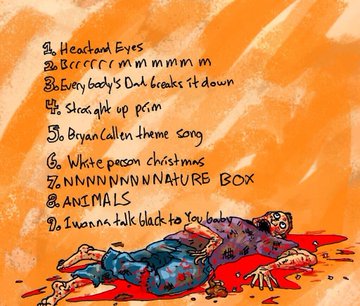 1. Heart and Eyes
2. Brrrrrrmmmmmm
3. Everybody's Dad breaks it down
4. Straight up prim
5. Bryan Callen theme song
6. White person christmas
7. NNNNNNNNNATURE BOX
8. ANIMALS
9. I wanna talk black to You baby